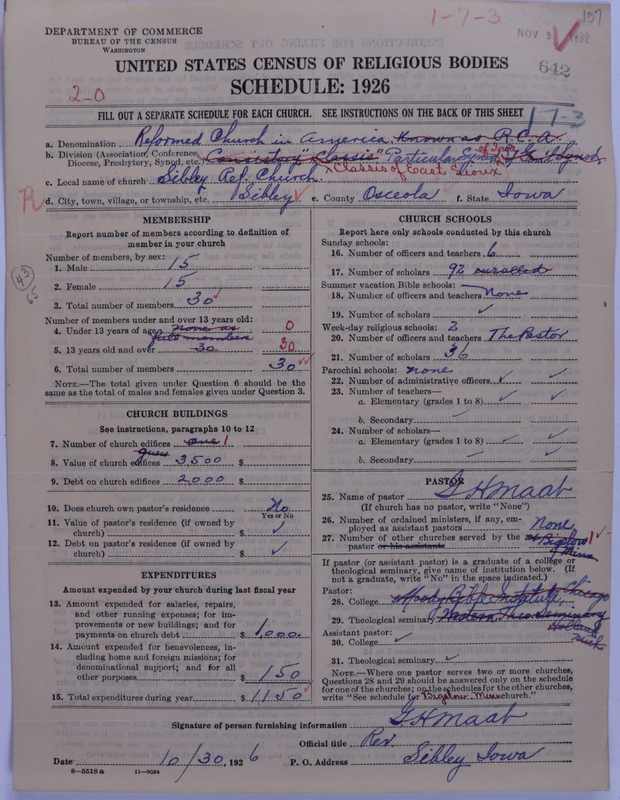 1-7-3
137
DEPARTMENT OF COMMERCE
BUREAU OF THE CENSUS
WASHINGTON
NOV 3
642
UNITED STATES CENSUS OF RELIGIOUS BODIES
SCHEDULE: 1926
2-0
FILL OUT A SEPARATE SCHEDULE FOR EACH CHURCH. SEE INSTRUCTIONS ON THE BACK OF THIS SHEET
17-3
a. Denomination Reformed Church in America Known as R.C.A.
b. Division (Association, Conference, Diocese, Presbytery, Synod, etc. Consistory "Classis" Particular Synod of Iowa
Classis of East Sioux
c. Local name of church Sibley Ref. Church
R
d. City, town, village, or township, etc. Sibley e. County Osceola f. State Iowa
MEMBERSHIP
Report number of members according to definition of member in your church
Number of members, by sex:
1. Male 15
2. Female 15
3. Total number of members 30
Number of members under and over 13 years old:
4. Under 13 years of age none as full members 0
5. 13 years old and over 30 30
6. Total number of members 30
NOTE.—The total given under Question 6 should be the same as the total of males and females given under Question 3.
43
CHURCH BUILDINGS
See instructions, paragraphs 10 to 12
7. Number of church edifices one 1
8. Value of church edifices guess 3,500 $
9. Debt on church edifices 2,000 $
10. Does church own pastor's residence No
Yes or No
11. Value of pastor's residence (if owned by church) $
12. Debt on pastor's residence (if owned by church) $
EXPENDITURES
Amount expended by your church during last fiscal year
13. Amount expended for salaries, repairs, and other running expenses; for improvements or new buildings; and for payments on church debt $ 1,000
14. Amount expended for benevolences, including home and foreign missions; for denominational support; and for all other purposes $ 150
15. Total expenditures during year $ 1150
CHURCH SCHOOLS
Report here only schools conducted by this church
Sunday schools:
16. Number of officers and teachers 6
17. Number of scholars 92 enrolled
Summer vacation Bible schools:
18. Number of officers and teachers None
19. Number of scholars ✓
Week-day religious schools: 2
20. Number of officers and teachers The Pastor
21. Number of scholars 36
Parochial schools: none
22. Number of administrative officers ✓
23. Number of teachers—
a. Elementary (grades 1 to 8) ✓
b. Secondary
24. Number of scholars—
a. Elementary (grades 1 to 8) ✓
b. Secondary
PASTOR
25. Name of pastor G H Maat
(If church has no pastor, write "None")
26. Number of ordained ministers, if any, employed as assistant pastors None
27. Number of other churches served by the pastor or his assistants at Bigelow Minn 1
If pastor (or assistant pastor) is a graduate of a college or theological seminary, give name of institution below. (If not a graduate, write "No" in the space indicated.)
Pastor:
28. College Moody Bible Institute Chicago
29. Theological seminary Western Theo Seminary Holland Mich
Assistant pastor:
30. College ✓
31. Theological seminary ✓
NOTE.—Where one pastor serves two or more churches, Questions 28 and 29 should be answered only on the schedule for one of the churches; on the schedules for the other churches, write "See schedule for Bigelow Minn church."
Signature of person furnishing information G H Maat
Official title Rev.
Date 10/30, 1926 P. O. Address Sibley Iowa
8-5518 a 11-9034